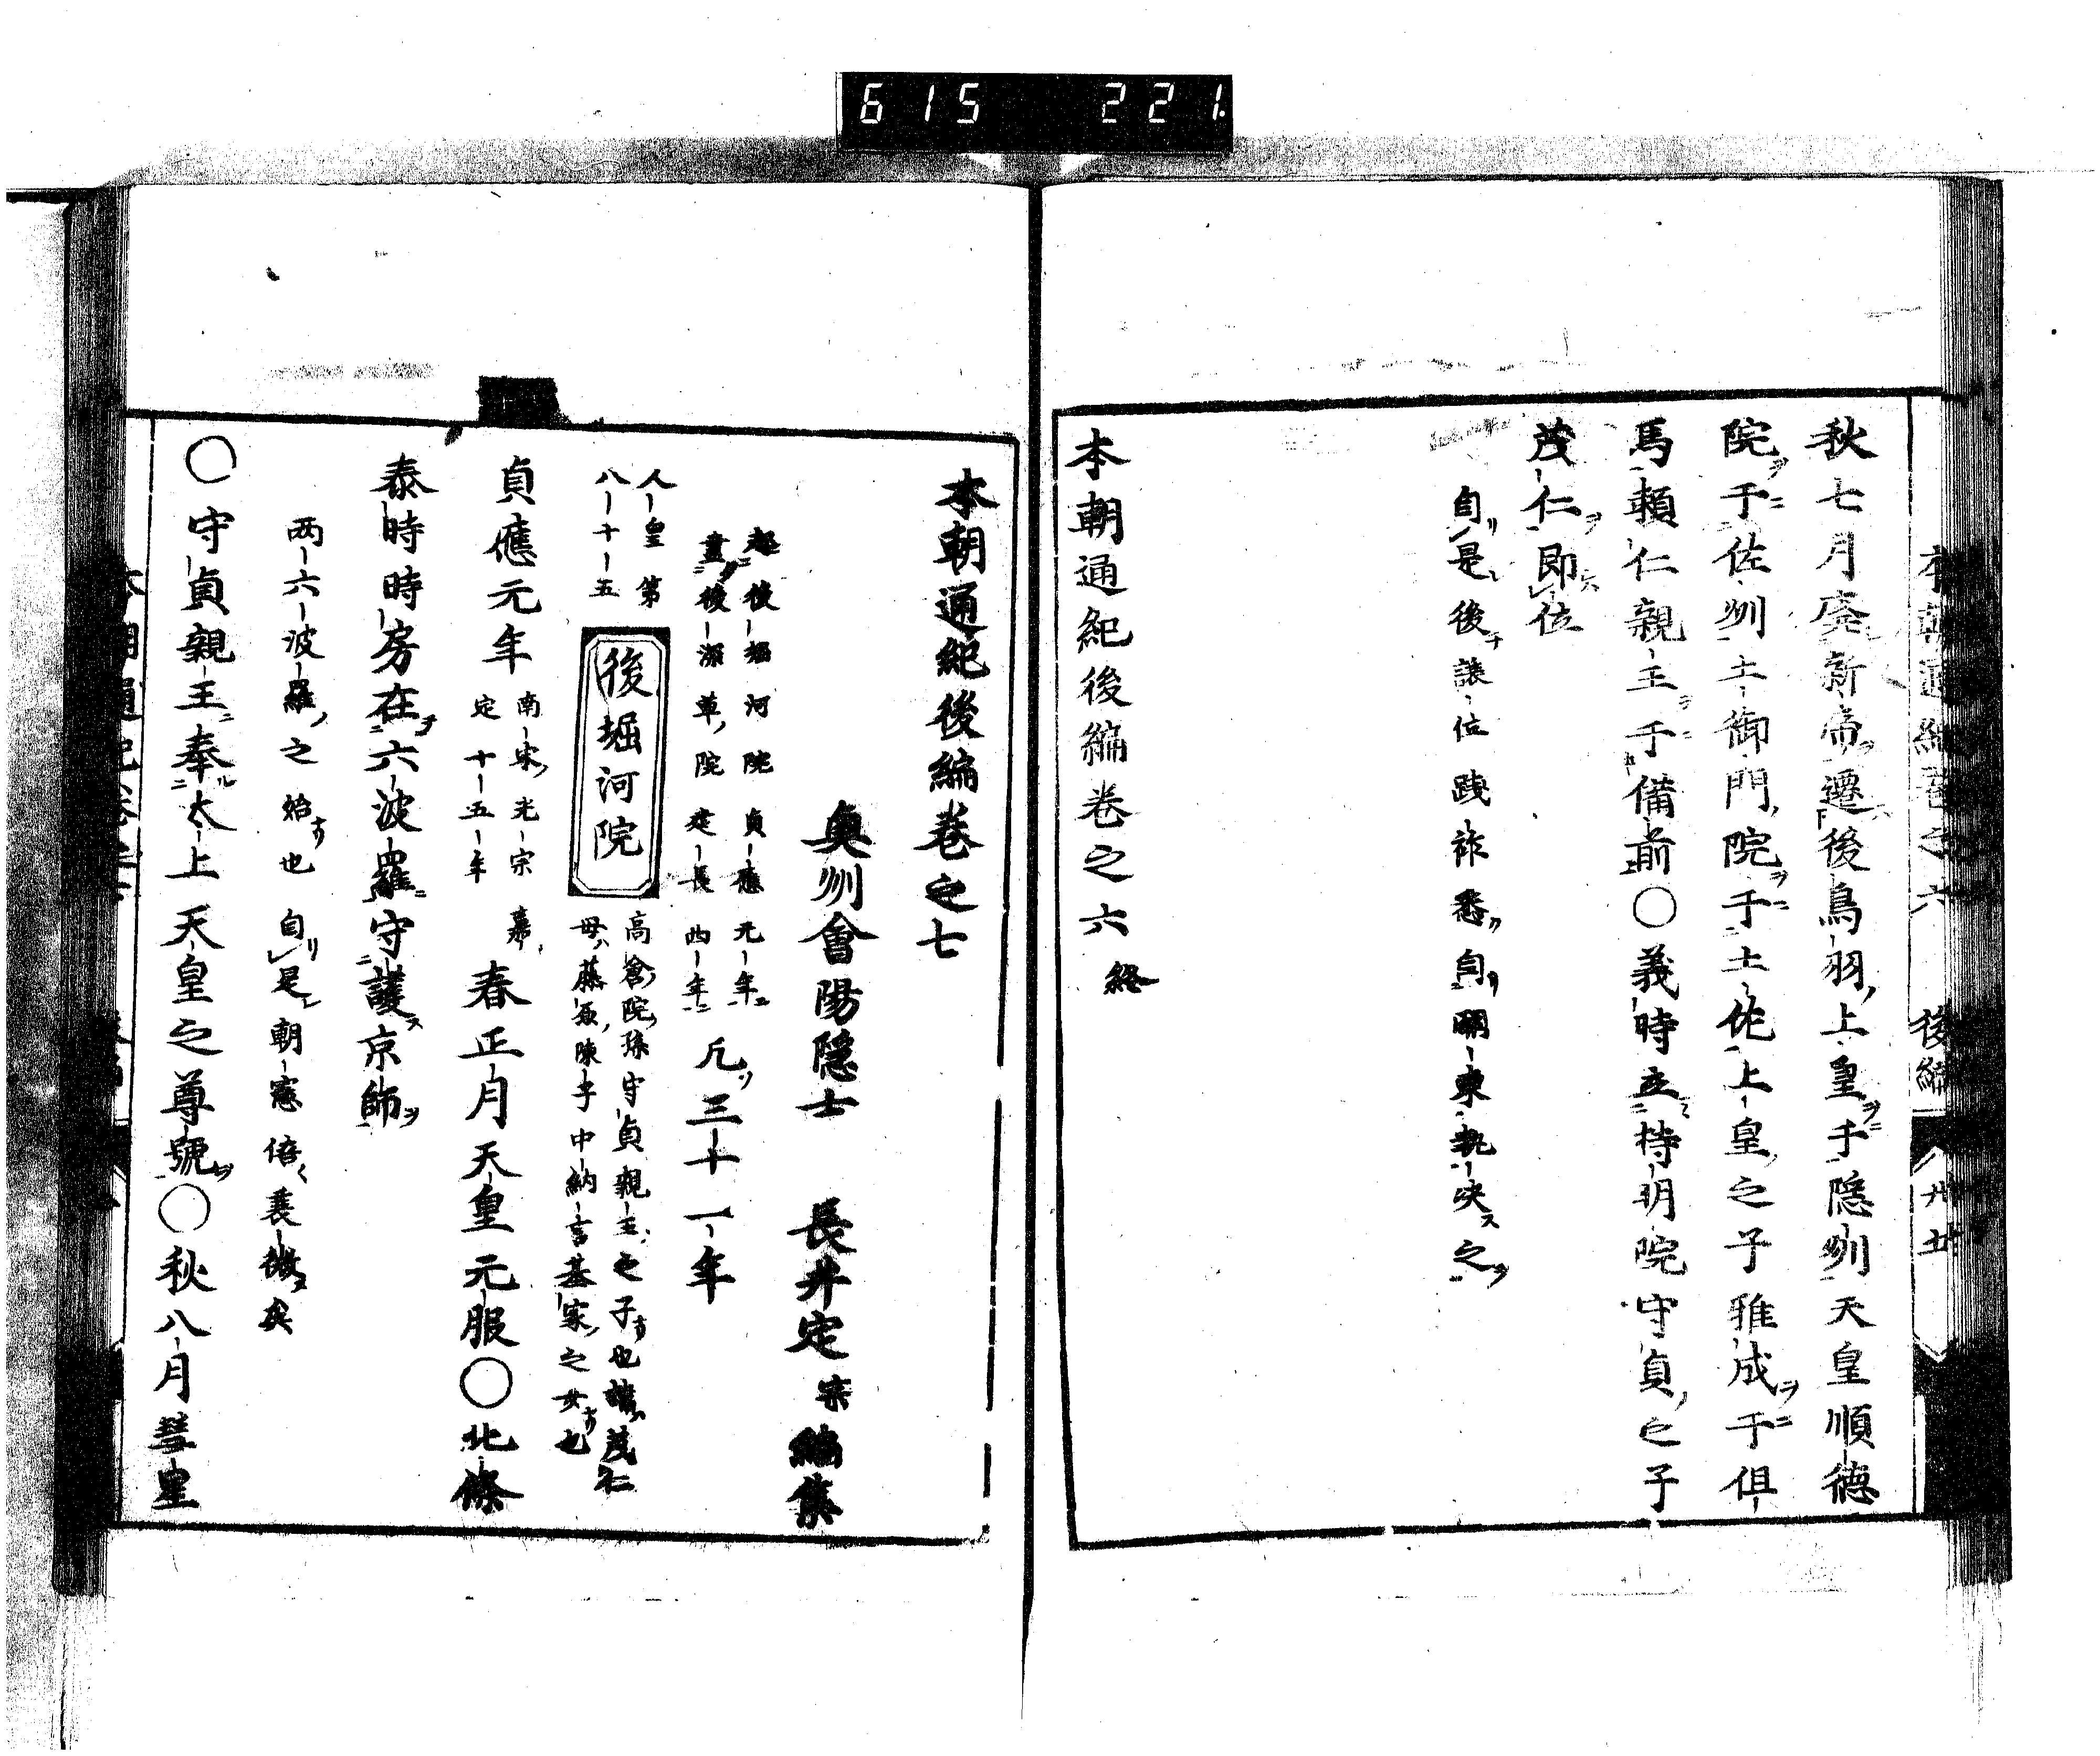 615 221
本朝通紀卷之六 後編 卅五
秋七月廃新帝遷後鳥羽上皇于隠州天皇順德
院于佐州土御門院于土佐上皇之子雅成于但
馬頼仁親王于備前○義時立持明院守貞之子
茂仁即位
自是後譲位踐祚悉自關東執決之
本朝通紀後編卷之六 終
本朝通紀後編卷之七
奥州會陽隠士 長井定宗編集
起後堀河院貞應元年
盡後深草院建長四年
凡三十一年
人皇第
八十五
後堀河院
高倉院孫守貞親王之子也諱茂仁
母藤原陳子中納言基家之女也
貞應元年
南宋光宗嘉
定十五年
春正月天皇元服○北條
泰時時房在六波羅守護京師
两六波羅之始也自是朝憲倍衰微矣
○守貞親王奉太上天皇之尊號○秋八月彗星